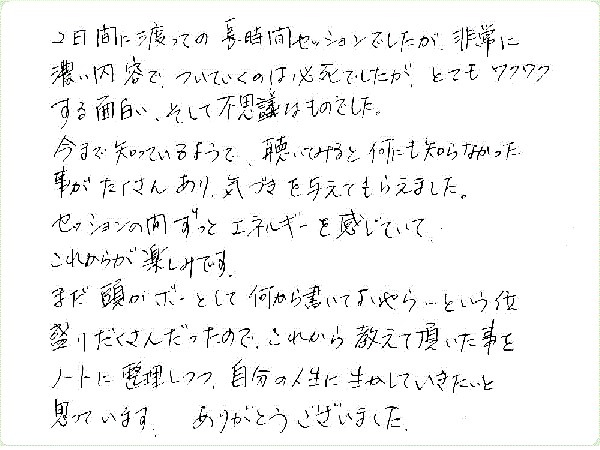 2日間に渡っての長時間セッションでしたが、非常に
濃い内容で、ついていくのは必死でしたが、とてもワクワク
する面白い、そして不思議なものでした。
今まで知っているようで、聴いてみると何にも知らなかった
事がたくさんあり、気づきを与えてもらえました。
セッションの間ずっとエネルギーを感じていて、
これからが楽しみです。
まだ頭がボーとして何から書いてよいやら…という位
盛りだくさんだったので、これから教えて頂いた事を
ノートに整理しつつ、自分の人生に生かしていきたいと
思っています。 ありがとうございました。